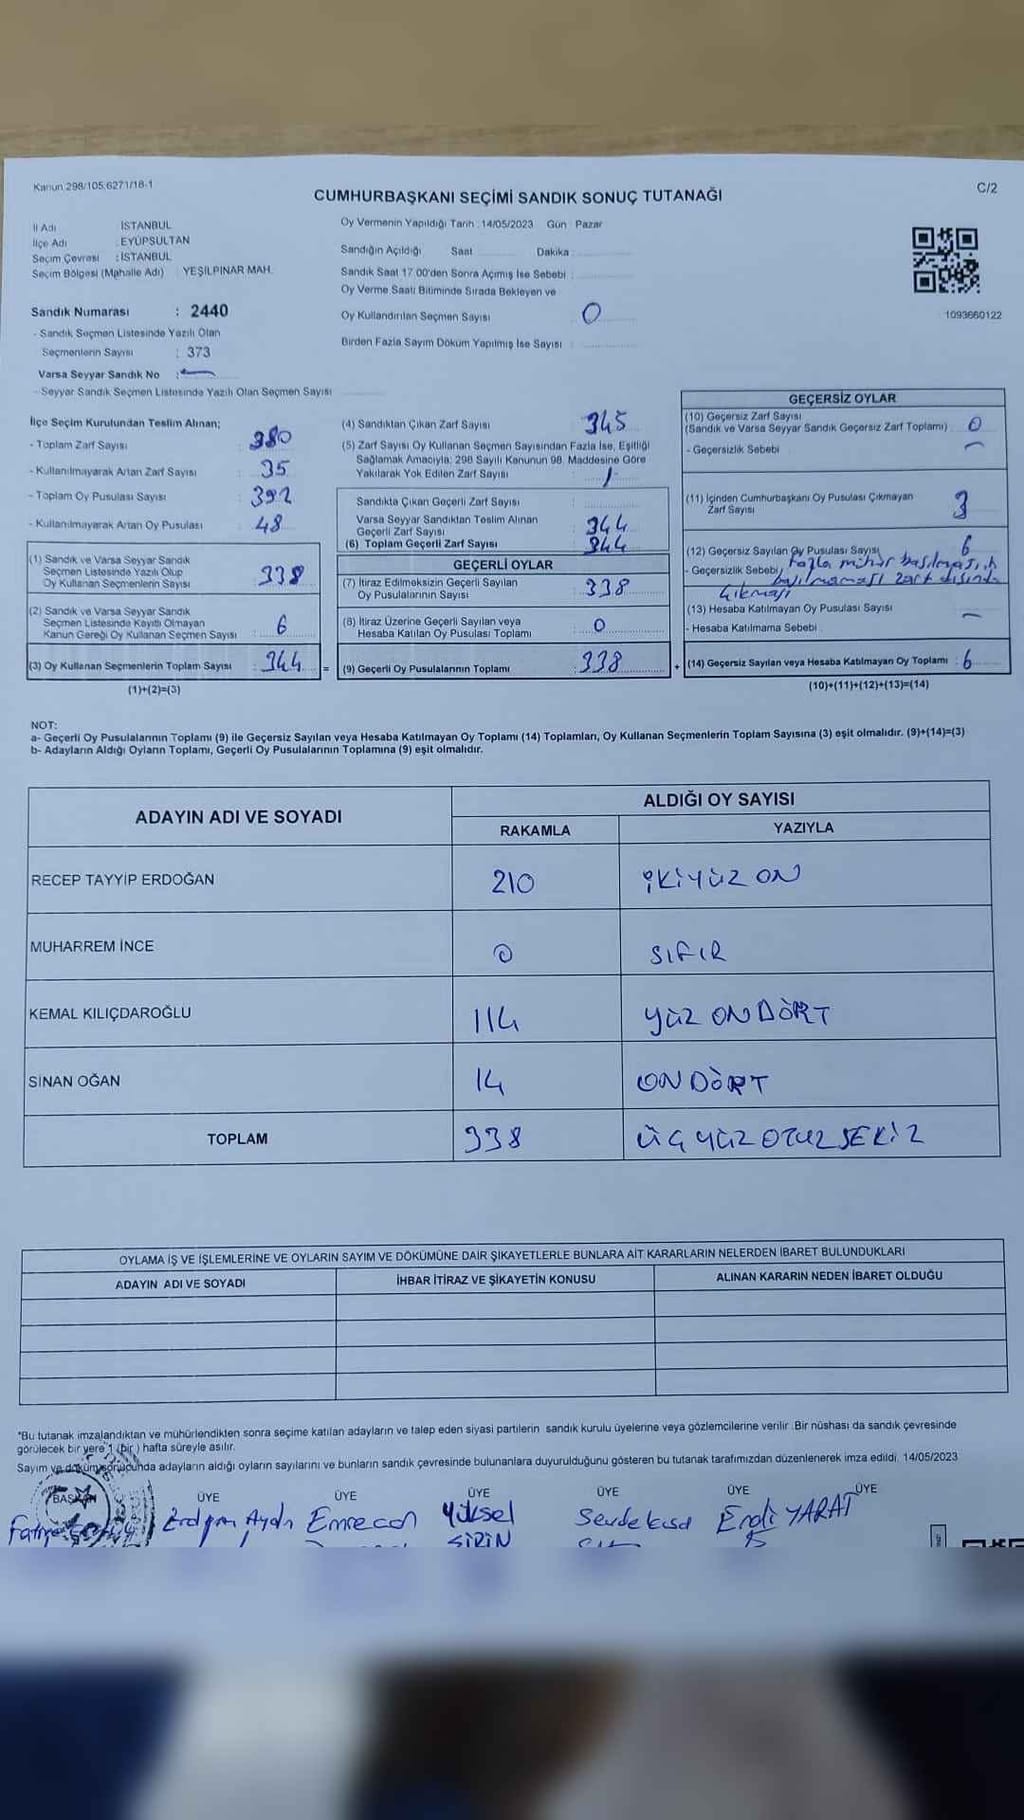 Kanun 298/105,6271/18-1
C/2
CUMHURBAŞKANI SEÇİMİ SANDIK SONUÇ TUTANAĞI
İl Adı : İSTANBUL
İlçe Adı : EYÜPSULTAN
Seçim Çevresi : İSTANBUL
Seçim Bölgesi (Mahalle Adı) : YEŞİLPINAR MAH.
Sandık Numarası : 2440
- Sandık Seçmen Listesinde Yazılı Olan
Seçmenlerin Sayısı : 373
Varsa Seyyar Sandık No :
- Seyyar Sandık Seçmen Listesinde Yazılı Olan Seçmen Sayısı
Oy Vermenin Yapıldığı Tarih : 14/05/2023 Gün : Pazar
Sandığın Açıldığı Saat Dakika
Sandık Saat 17.00'den Sonra Açılmış İse Sebebi :
Oy Verme Saati Bitiminde Sırada Bekleyen ve
Oy Kullandırılan Seçmen Sayısı 0
Birden Fazla Sayım Döküm Yapılmış İse Sayısı :
1093660122
İlçe Seçim Kurulundan Teslim Alınan;
- Toplam Zarf Sayısı : 380
- Kullanılmayarak Artan Zarf Sayısı : 35
- Toplam Oy Pusulası Sayısı : 392
- Kullanılmayarak Artan Oy Pusulası : 48
(1) Sandık ve Varsa Seyyar Sandık
Seçmen Listesinde Yazılı Olup
Oy Kullanan Seçmenlerin Sayısı : 338
(2) Sandık ve Varsa Seyyar Sandık
Seçmen Listesinde Kayıtlı Olmayan
Kanun Gereği Oy Kullanan Seçmen Sayısı : 6
(3) Oy Kullanan Seçmenlerin Toplam Sayısı : 344 =
(1)+(2)=(3)
(4) Sandıktan Çıkan Zarf Sayısı : 345
(5) Zarf Sayısı Oy Kullanan Seçmen Sayısından Fazla İse, Eşitliği
Sağlamak Amacıyla; 298 Sayılı Kanunun 98. Maddesine Göre
Yakılarak Yok Edilen Zarf Sayısı : 1
Sandıkta Çıkan Geçerli Zarf Sayısı :
Varsa Seyyar Sandıktan Teslim Alınan
Geçerli Zarf Sayısı : 344
(6) Toplam Geçerli Zarf Sayısı : 344
GEÇERLİ OYLAR
(7) İtiraz Edilmeksizin Geçerli Sayılan
Oy Pusulalarının Sayısı : 338
(8) İtiraz Üzerine Geçerli Sayılan veya
Hesaba Katılan Oy Pusulası Toplamı : 0
(9) Geçerli Oy Pusulalarının Toplamı : 338 +
GEÇERSİZ OYLAR
(10) Geçersiz Zarf Sayısı
(Sandık ve Varsa Seyyar Sandık Geçersiz Zarf Toplamı) : 0
- Geçersizlik Sebebi :
(11) İçinden Cumhurbaşkanı Oy Pusulası Çıkmayan
Zarf Sayısı 3
(12) Geçersiz Sayılan Oy Pusulası Sayısı 6
- Geçersizlik Sebebi Fazla mühür basılması,
basılmaması zarf dışında
çıkması
(13) Hesaba Katılmayan Oy Pusulası Sayısı
- Hesaba Katılmama Sebebi
(14) Geçersiz Sayılan veya Hesaba Katılmayan Oy Toplamı : 6
(10)+(11)+(12)+(13)=(14)
NOT:
a- Geçerli Oy Pusulalarının Toplamı (9) ile Geçersiz Sayılan veya Hesaba Katılmayan Oy Toplamı (14) Toplamları, Oy Kullanan Seçmenlerin Toplam Sayısına (3) eşit olmalıdır. (9)+(14)=(3)
b- Adayların Aldığı Oyların Toplamı, Geçerli Oy Pusulalarının Toplamına (9) eşit olmalıdır.
ADAYIN ADI VE SOYADI
ALDIĞI OY SAYISI
RAKAMLA YAZIYLA
RECEP TAYYİP ERDOĞAN 210 İKİYÜZ ON
MUHARREM İNCE 0 SIFIR
KEMAL KILIÇDAROĞLU 114 YÜZ ON DÖRT
SİNAN OĞAN 14 ON DÖRT
TOPLAM 338 ÜÇ YÜZ OTUZ SEKİZ
OYLAMA İŞ VE İŞLEMLERİNE VE OYLARIN SAYIM VE DÖKÜMÜNE DAİR ŞİKAYETLERLE BUNLARA AİT KARARLARIN NELERDEN İBARET BULUNDUKLARI
ADAYIN ADI VE SOYADI İHBAR İTİRAZ VE ŞİKAYETİN KONUSU ALINAN KARARIN NEDEN İBARET OLDUĞU
*Bu tutanak imzalandıktan ve mühürlendikten sonra seçime katılan adayların ve talep eden siyasi partilerin sandık kurulu üyelerine veya gözlemcilerine verilir. Bir nüshası da sandık çevresinde
görülecek bir yere 1 (bir) hafta süreyle asılır.
Sayım ve dökümü sonucunda adayların aldığı oyların sayılarını ve bunların sandık çevresinde bulunanlara duyurulduğunu gösteren bu tutanak tarafımızdan düzenlenerek imza edildi. 14/05/2023
BAŞKAN ÜYE ÜYE ÜYE ÜYE ÜYE ÜYE
Erdem Aydın Emrecan Yüksel YARAT
ŞİRİN